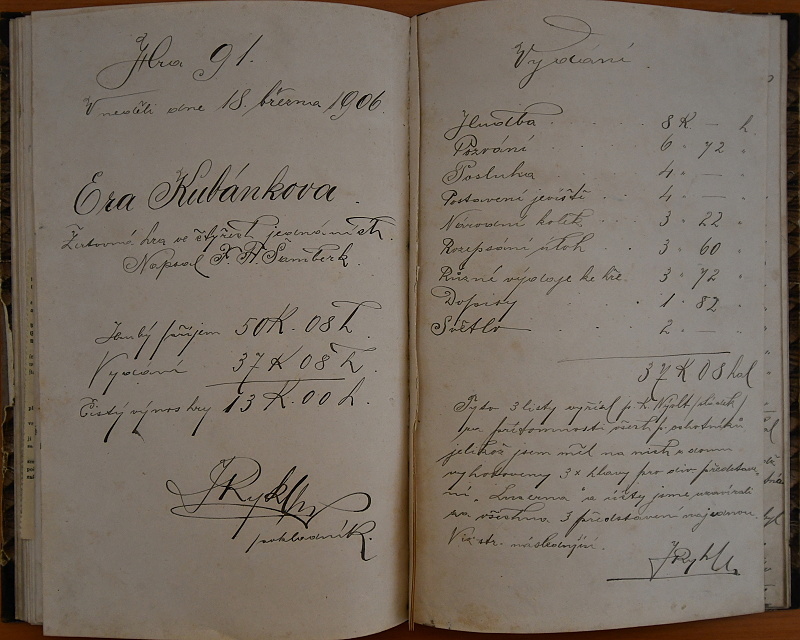 Hra 91.
V neděli dne 18. března 1906.
Era Kubánkova.
Žertovná hra ve čtyřech jednáních.
Napsal F. F. Šamberk.
Hrubý příjem 50 K. 08 h.
Vydání 37 K 08 h.
Čistý výnos hry 13 K. 00 h.
JRykl
pokladník.
Vydání.
Hudba 8 K. — h.
Pozvání 6 " 72 "
Posluha 4 " — "
Postavení jeviště 4 " — "
Národní kolek 3 " 22 "
Rozepsání úloh 3 " 60 "
Různé výdaje ke hře. 3 " 72 "
Dopisy 1 " 82 "
Světlo 2 " — "
37 K 08 hal
Tyto 3 listy vyřízl p. K. Nypolt
za přítomnosti všech p. ochotníků
jelikož jsem měl na nich doma
vyhotoveny 3x hlavy pro div. představe-
ní „Lucerna" a účty jsme uzavírali
za všechna 3 představení najednou.
Viz str. následující.
JRykl